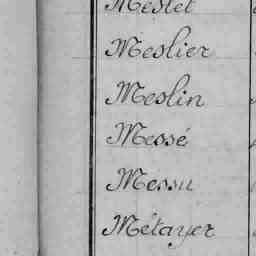 Meslet
Meslier
Meslin
Messé
Messu
Métayer